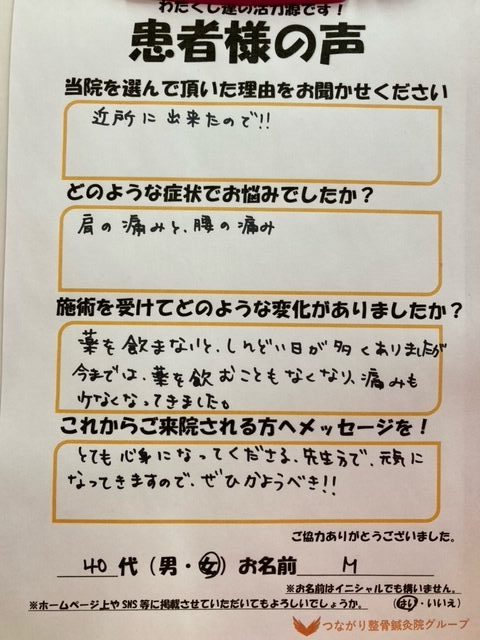 わたくし達の活力源です！
患者様の声
当院を選んで頂いた理由をお聞かせください
近所に出来たので!!
どのような症状でお悩みでしたか？
肩の痛みと、腰の痛み
施術を受けてどのような変化がありましたか？
薬を飲まないと、しんどい日が多くありましたが
今までは、薬を飲むこともなくなり、痛みも
少なくなってきました。
これからご来院される方へメッセージを！
とても心身になってくださる、先生方で、元気に
なってきますので、ぜひかようべき!!
ご協力ありがとうございました。
40代（男・女）お名前 M
※お名前はイニシャルでも構いません。
※ホームページ上やSNS等に掲載させていただいてもよろしいでしょうか。（はい・いいえ）
つながり整骨鍼灸院グループ